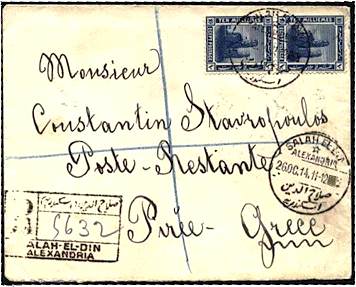 TEN MILLIEMES TEN MILLIEMES
Monsieur
Constantin Stavropoulos
Poste-Restante
Pirée - Grèce
SALAH EL DIN
ALEXANDRIA
26 DC. 14. 11-12
صلاح الدين
اسكندرية
صلاح الدين (اسكندرية)
R
5632
SALAH-EL-DIN
ALEXANDRIA